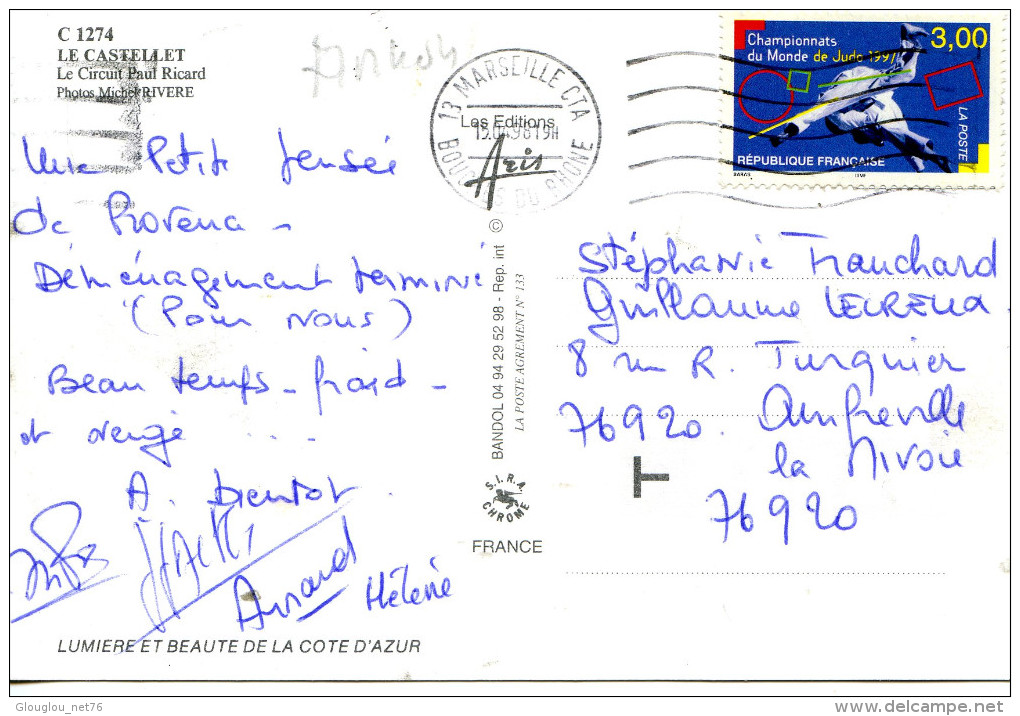 C 1274
LE CASTELLET
Le Circuit Paul Ricard
Photos Michel RIVERE
Une Petite Pensée
de Provence -
Déménagement terminé
(Pour nous)
Beau temps - froid -
et neige ...
A Bientot.
Hélène
LUMIERE ET BEAUTE DE LA COTE D'AZUR
13 MARSEILLE CTA
15.04.98 19H
BOUCHES DU RHONE
Les Editions
Aris
BANDOL 04 94 29 52 98 - Rep. int ©
LA POSTE AGREMENT N° 133
S.I.R.A.
CHROME
FRANCE
Championnats
du Monde de Judo 1997
3,00
LA POSTE
RÉPUBLIQUE FRANÇAISE
Stéphanie Franchard
Guillaume
8 rue R. Turquier
76920. Amfreville
la Mivoie
76920
T
Glouglou_net76
delcampe.net